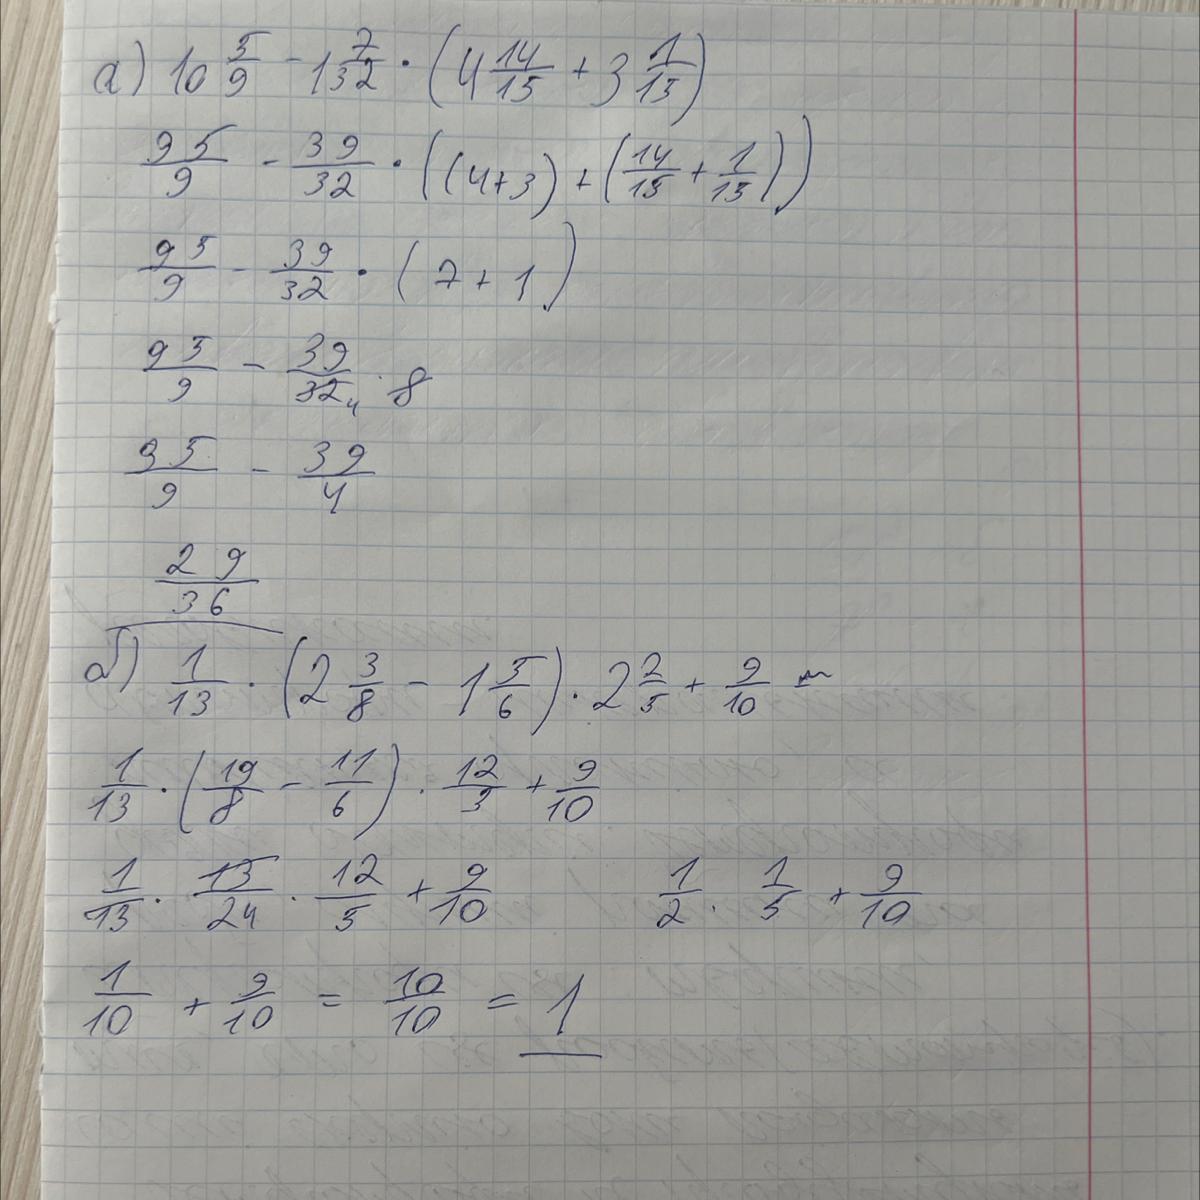 а) 10 5/9 - 1 7/32 · (4 14/15 + 3 1/15)
95/9 - 39/32 · ((4+3) + (14/15 + 1/15))
95/9 - 39/32 · (7 + 1)
95/9 - 39/32 4 · 8
95/9 - 39/4
29/36
б) 1/13 · (2 3/8 - 1 5/6) · 2 2/5 + 9/10 =
1/13 · (19/8 - 11/6) · 12/5 + 9/10
1/13 · 13/24 · 12/5 + 9/10 1/2 · 1/5 + 9/10
1/10 + 9/10 = 10/10 = 1